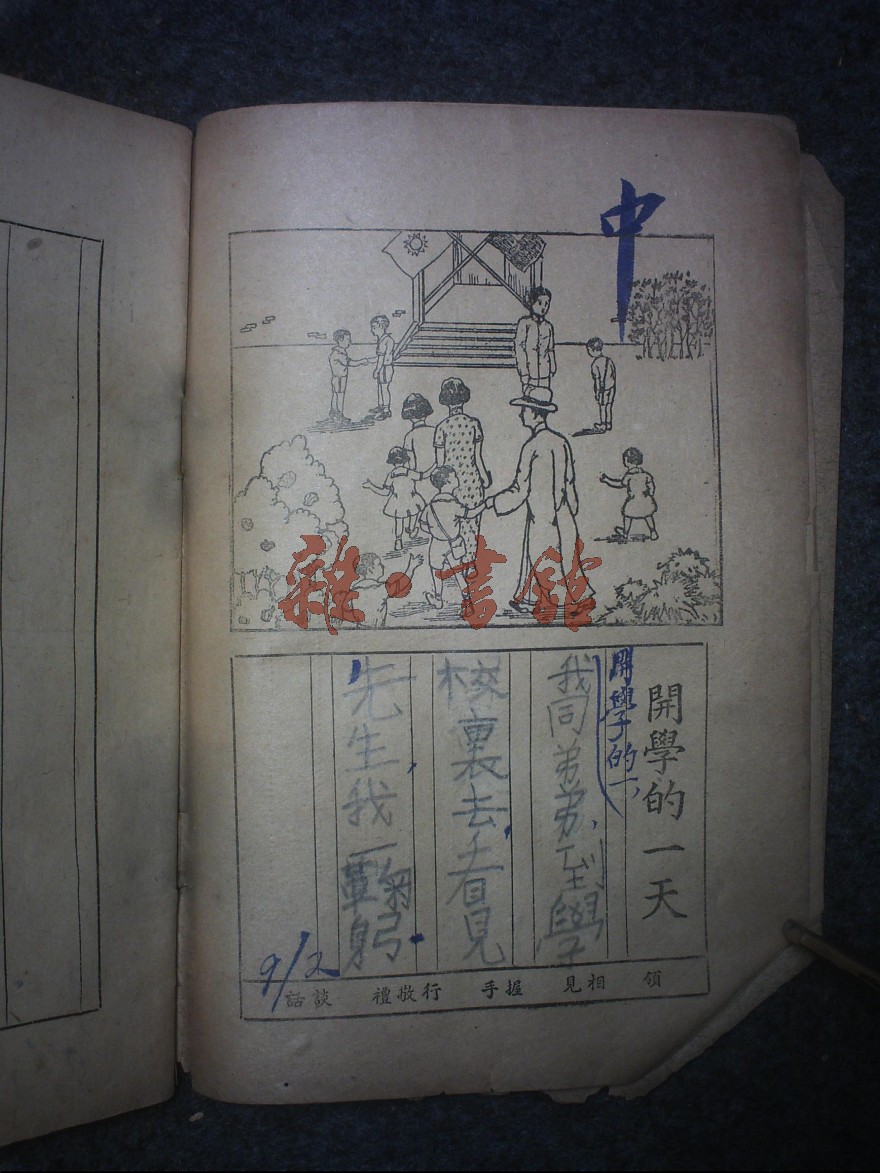 中
雜·書館
開學的一天
開學的一、
我同弟弟、到學
校裏去、看見
先生、我一鞠躬.
領 相見 握手 行敬禮 談話
9/2